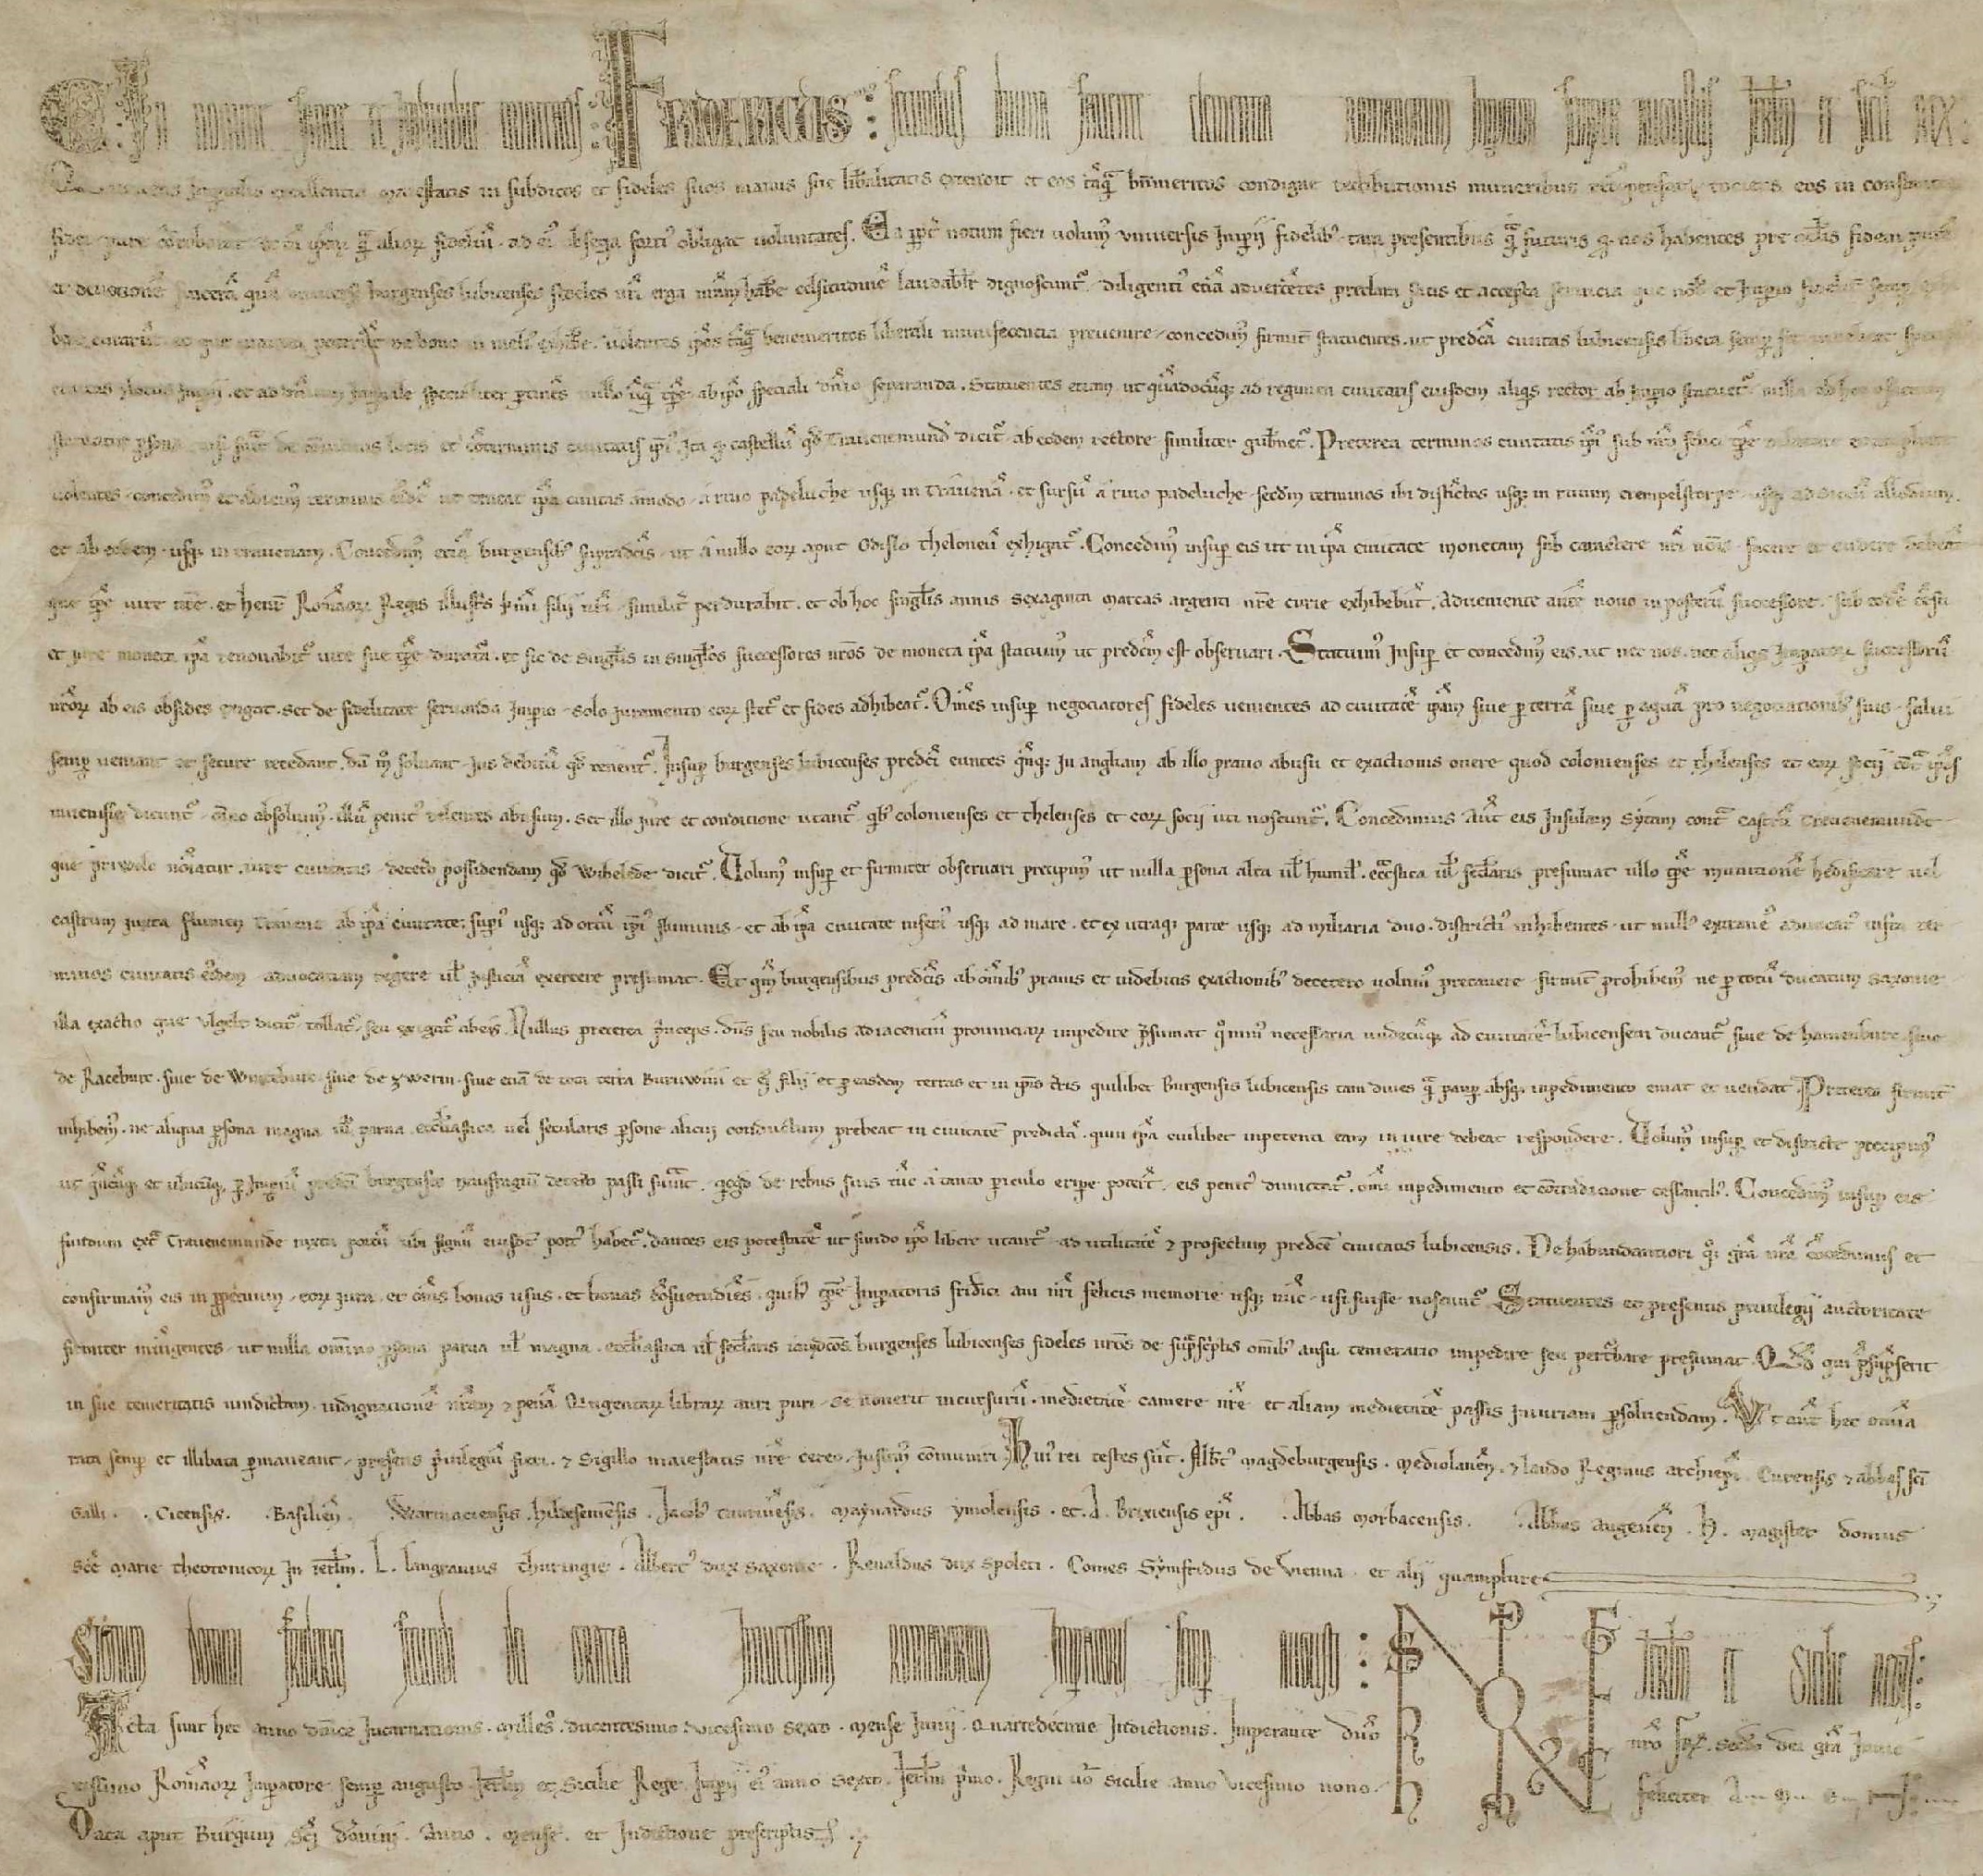 In nomine sancte et individue trinitatis : Fridericus : secundus divina favente clementia romanorum Imperator semper augustus Jerusalem et sicilie rex :
Imperialis excellentia maiestatis in subditos et fideles suos manus sue liberalitatis extendit et eos tāqᵃ bn̄meritos condigne retributionis muneribus eos in constantia
fidei pure corroborat ad eiꝰ obseqͥa fortiꝰ obligat voluntates. Ea ꝓpt͛ notum fieri volumꝰ vniversis Imperii fidelibꝰ tam presentibus qᵃ futuris ꝙ nos habentes pre oculis fidem puram
et devotionē sincerā quā universi burgenses lubicenses fideles nr̄i erga nr̄am habere celsitudinē laudabiliter dignoscuntᷣ. diligentiꝰ eciā advertētes preclara satis et accepta servicia que nob̄ et Imperio
volentes ip̄os tāqᵃ benemeritos liberali munificencia prevenire concedimꝰ firmit͛ statuentes. ut predc̄a civitas lubicensis libera semper sit
civitas et locus Imperii. et ad dominium Imperiale specialiter ꝑtinēs nullo ūqᵃ tp̄re ab ip̄o speciali dn̄io separanda. Statuentes etiam ut qn̄docūqꝫ ad regimen civitatis eiusdem aliqͥs rector ab Imperio statuet᷑
nisi de locis et cōterminis civitatis ip̄iꝰ. Ita ꝙ castellū qd̄ Travenemunde dicit᷑ ab eodem rectore similiter gubn̄et᷑. Preterea terminos civitatis ip̄iꝰ sub nr̄o felici tp̄re
volentes concedimꝰ et addimꝰ terminis eisdē ut teneat ip̄a civitas amodo a rivo padeluche usqꝫ in Travenā. et sursū a rivo padeluche secd̄m terminos ibi distīctos usqꝫ in rivum crempelstorpe
et ab eodem usqꝫ in travenam. Concedimꝰ eciā burgensibꝰ supradc̄is ut a nullo eoꝝ aput Odislo theloneū exigat᷑. Concedimꝰ insuꝑ eis ut in ip̄a civitate monetam sub caractere nr̄i nōis facere et cudere debeāt
que tp̄re vite nr̄e. et henr͛ Romanoꝝ Regis illustris filii nr̄i similit͛ perdurabit. et ob hoc singl̄is annis sexaginta marcas argenti nr̄e curie exhibebūt. Adveniente aut̄ novo in posterū successore. sub eodē censu
et iure moneta ip̄a renovabit᷑ vite sue tp̄re duratura. et sic de singl̄is in singl̄os successores nr̄os de moneta ip̄a statuimꝰ ut predc̄m est observari. Statuimꝰ Insuꝑ et concedimꝰ eis. ut nec nos. nec aliqͥs Imperatoꝝ successorū
nr̄oꝝ ab eis obsides exigat. set de fidelitate servanda Imperio solo iuramento eoꝝ stet᷑ et fides adhibeat᷑. Oms̄ insuꝑ negociatores fideles venientes ad civitatē ip̄am sive ꝑ terrā sive ꝑ aquā pro negociationibꝰ suis salvi
semꝑ veniant et secure recedant. dum mō solvant ius debitū qd̄ tenent᷑. Insuꝑ burgenses lubicenses predc̄i euntes qn̄qꝫ in angliam ab illo pravo abusu et exactionis onere quod colonienses et thelenses et eoꝝ socii cont᷑ ip̄os
invenisse dicunt᷑ om̄ino absolvimꝰ. illū penitꝰ delentes abusum. set illo iure et condicione utant᷑ qͥbꝰ colonienses et thelenses et eoꝝ socii uti noscunt᷑. Concedimus aut̄ eis Insulam sytam cont᷑ castrū Travenemunde
que priwolc nōiatur. iure civitatis decet͛o possidendam qd̄ Wicbelede dicit᷑. Volumꝰ insuꝑ et firmiter observari precipimꝰ ut nulla ꝑsona alta vl̄ humil̄. ecc̄astica vl̄ secl̄aris presumat ullo tp̄re munitionē hedificare vel
castrum iuxta flumen Travene ab ip̄a civitate superiꝰ usqꝫ ad ortū ip̄iꝰ fluminis et ab ip̄a civitate inferiꝰ usqꝫ ad mare. et ex utraqꝫ parte usqꝫ ad miliaria duo. districtiꝰ inhibentes ut nullꝰ extraneꝰ advocatꝰ infra ter
minos civitatis eiꝰdem advocatiam regere vl̄ iusticiā exercere presumat. Et qm̄ burgensibus predc̄is ab om̄ibꝰ pravis et indebitis exactionibꝰ decetero volumꝰ precavere firmit͛ prohibemꝰ ne ꝑ totū ducatum saxonie
illa exactio que ungelt dicit᷑ tollat᷑ seu exigat᷑ ab eis. Nullus preterea pͥnceps. dn̄s seu nobilis adiacentiū provinciaꝝ impedire pͤsumat qͦminꝰ necessaria undecūqꝫ ad civitatē lubicensem ducant᷑ sive de hamenburc sive
de Raceburc. sive de Witteburc. sive de zwerin. sive eciā de tota terra Buruwini et eiꝰ filii et ꝑ easdem terras et in ip̄is t͛ris quilibet Burgensis lubicensis tam dives qᵃ pauꝑ absqꝫ impedimento emat et vendat. Preterea firmit͛
inhibemꝰ. ne aliqua ꝑsona magna vl̄ parva ecclesiastica vel secularis ꝑsone alicui conductum prebeat in civitatē predictā. quin ip̄a cuilibet inpetenti eam in iure debeat respondere. Volumꝰ insuꝑ et districte precipimꝰ
ut qn̄cūqꝫ et ubicūqꝫ ꝑ Imperiū predc̄i burgenses naufragiū decet͛o passi fuerint. qͥcqͥd de rebus suis tūc a tanto ꝑiculo eripere poterīt eis penitꝰ dimittat᷑. omī inpedimento et cōtradictione cessantibꝰ. Concedimꝰ insuꝑ eis
fundum ext᷑ Travenemunde iuxta portū ubi signū eiusdē portꝰ habet᷑. dantes eis potestatē ut fundo ip̄o libere utant᷑ ad utilitatē ⁊ profectum predc̄e civitatis lubicensis. De habundantiori qͦqꝫ gr̄a nr̄a concedimus et
confirmamꝰ eis in ꝑpetuum eoꝝ iura et om̄es bonos usus. et bonas cōsuetudines. quibꝰ tp̄re Imperatoris frid͛ici avi nr̄i felicis memorie usqꝫ nūc usi fuisse noscunt᷑. Statuentes et presentis privilegii auctoritate
firmiter iniūgentes ut nulla om̄ino ꝑsona parva vl̄ magna. ecclesiastica vl̄ secl̄aris iamdc̄os burgenses lubicenses fideles nr̄os de supᷓscͥptis om̄ibꝰ ausu temerario impedire seu perturbare presumat. Qd̄ qui pͤsūpserit
in sue temeritatis vindictam. indignacionē nr̄am ⁊ penā Quingentaꝝ libraꝝ auri puri se noverit incursurū. medietatē camere nr̄e et aliam medietatē passis iniuriam ꝑsolvendam. Ut aut̄ hec omīa
rata semꝑ et illibata ꝑmaneant presens pͥvilegiū fieri. ⁊ sigillo maiestatis nr̄e cereo iussimꝰ cōmuniri. Huiꝰ rei testes sūt. Alb͛tꝰ magdeburgensis. mediolanen̄. ⁊ lando Reginus archiepī. Curensis ⁊ abbas sc̄i
Galli. . Cicensis. . Basilien̄. Warmaciensis. hildesemēsis. Jacobꝰ taurinēsis. maynardus ymolensis. et. A. Brixiensis epī. . Abbas morbacensis. . Abbas augen̄. H. magister domus
sc̄e marie theotonicoꝝ in Jerl̄m. L. langravius thuringie. Albertꝰ dux saxonie. Renaldus dux spoleti. Comes Symfridus de Vienna. et alii quamplures
Signum domini friderici secundi dei gratia Invictissimi romanorum Imperatoris semper augusti : Jerusalem et sicilie regis :
Acta sunt hec anno dn̄ice Incarnationis. milleso. ducentesimo vicesimo sexto. mense Junii. quartedecime Indictionis. Imperante dn̄o nr̄o frid͛. secundo dei gr̄a Invic
tissimo Romanoꝝ Imperatore semꝑ augusto Jerl̄m et sicilie Rege. Imperii eiꝰ anno sexto. Jerl̄m pͥmo. Regni vͦ sicilie anno vicesimo nono. feliciter Amen
Data aput Burgum sc̄i donini. Anno. mense. et Indictione prescriptis.